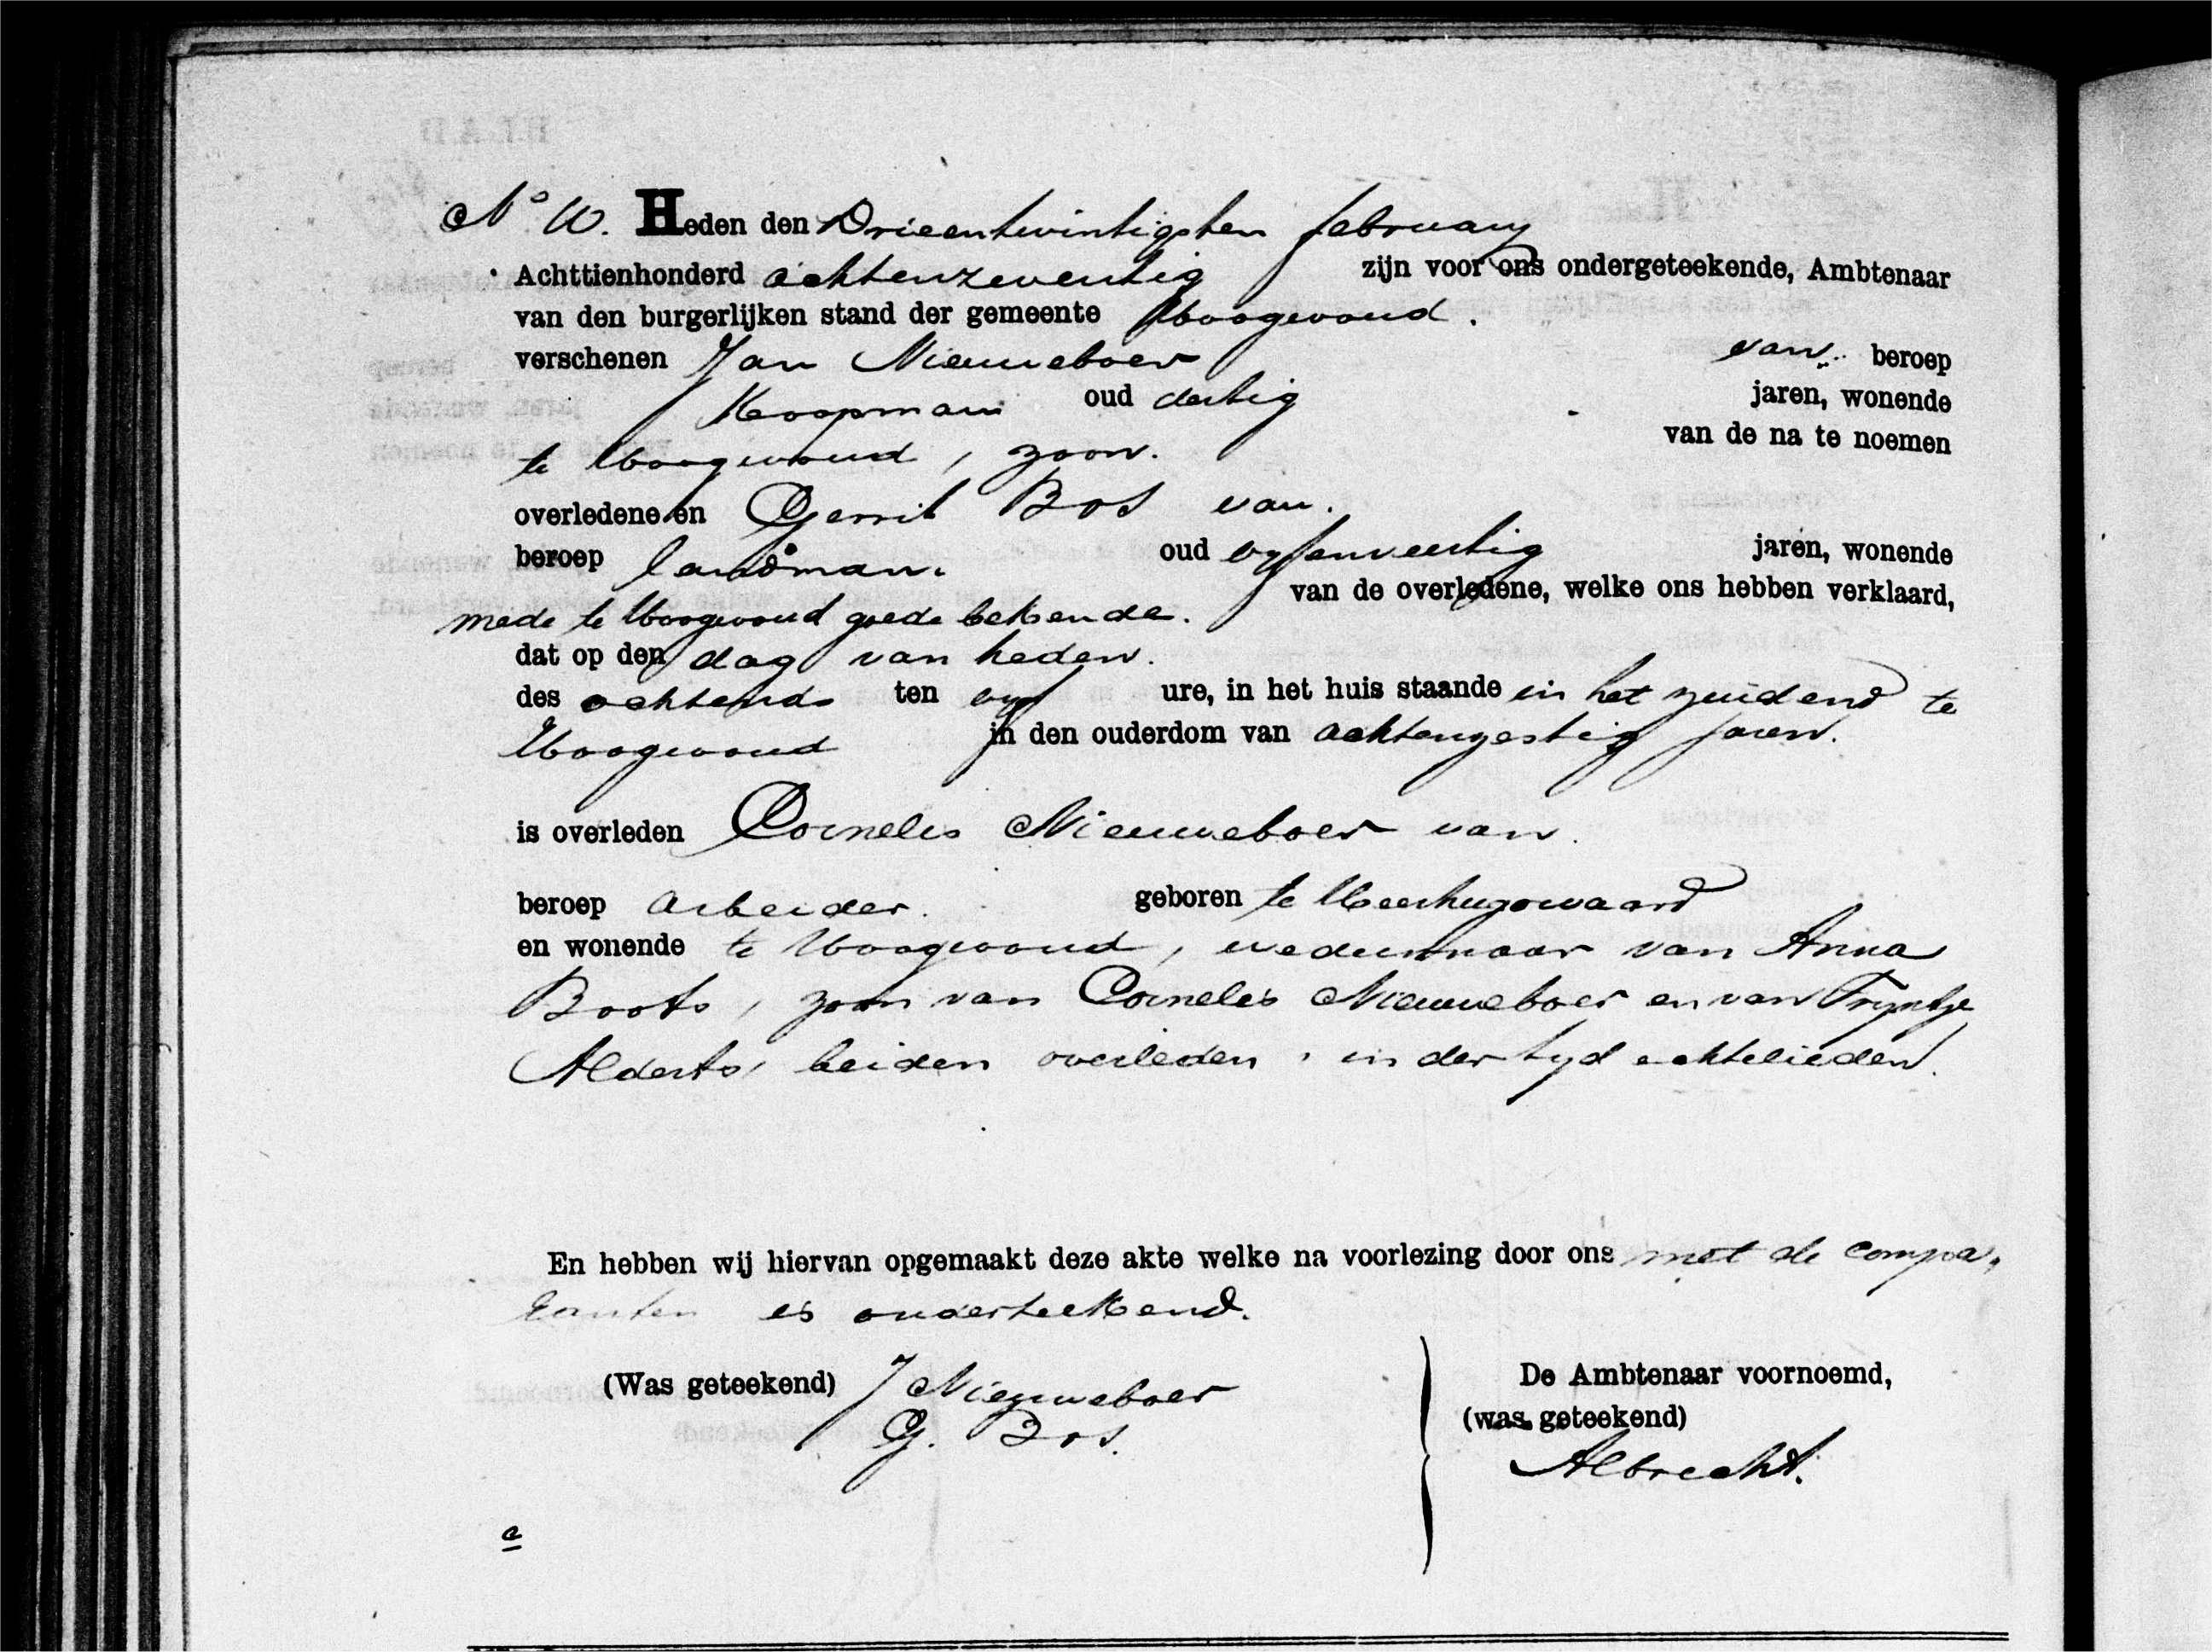 No 10. Heden den Drieentwintigsten february
Achttienhonderd achtenzeventig zijn voor ons ondergeteekende, Ambtenaar
van den burgerlijken stand der gemeente Hoogwoud.
verschenen Jan Nieuweboer van beroep
Koopman oud dertig jaren, wonende
te Hoogwoud, zoon. van de na te noemen
overledene en Gerrit Bos van.
beroep landman. oud vyfenveertig jaren, wonende
mede te Hoogwoud goede bekende. van de overledene, welke ons hebben verklaard,
dat op den dag van heden.
des ochtends ten vyf ure, in het huis staande in het zuidend te
Hoogwoud in den ouderdom van achtenzestig jaren.
is overleden Cornelis Nieuweboer van.
beroep arbeider. geboren te Heerhugowaard
en wonende te Hoogwoud, weduwnaar van Anna
Boots, zoon van Cornelis Nieuweboer en van Tryntje
Alderts, beiden overleden, in der tyd echtelieden.
En hebben wij hiervan opgemaakt deze akte welke na voorlezing door ons met de compa„
ranten is onderteekend.
(Was geteekend) J Nieuweboer
G. Bos.
De Ambtenaar voornoemd,
(was geteekend)
Albrecht.